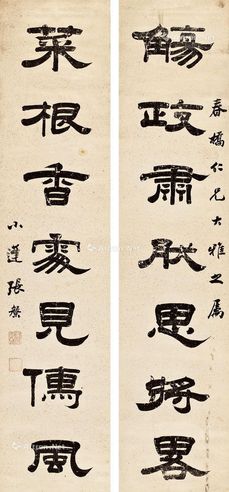 春橋仁兄大雅之屬
觴政肅思將畧
菜根香處見傳風
小蓬張槃